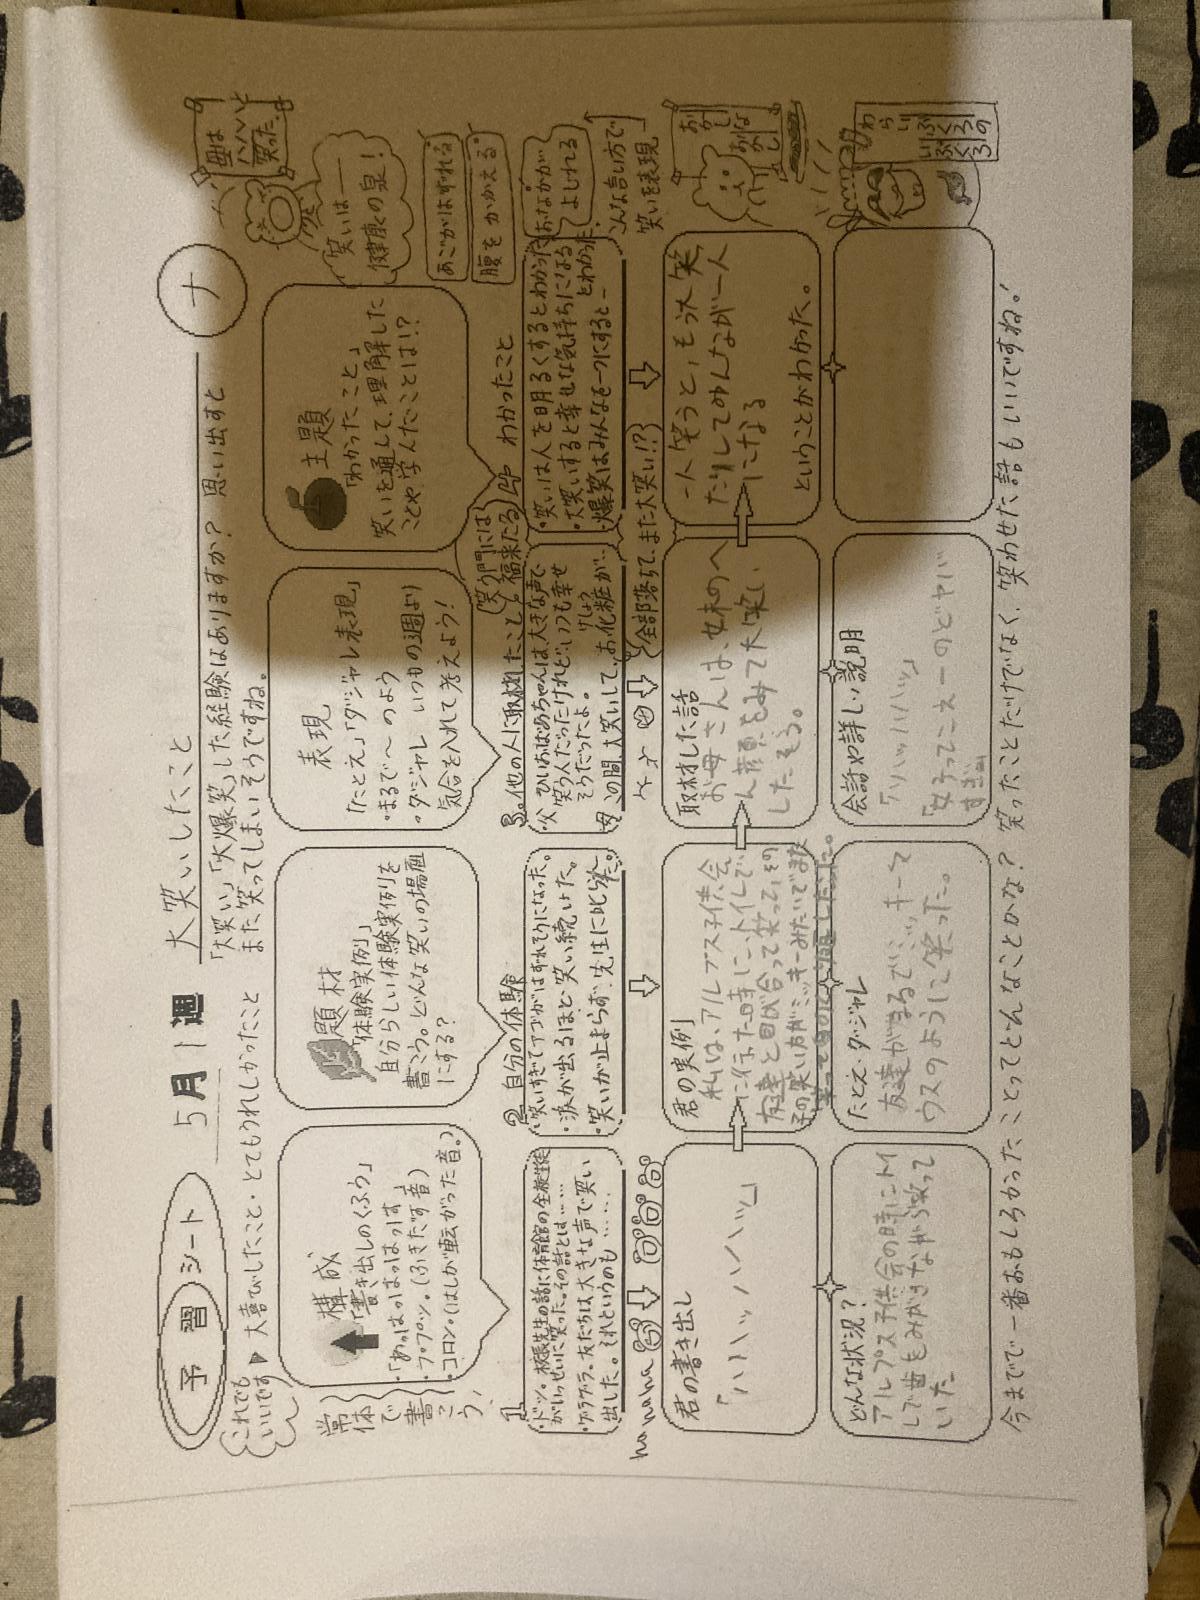 予習シート
5月1週
大笑いしたこと
ナ
これでも
いいです
▶大喜びしたこと・とてもうれしかったこと
「大笑い」「大爆笑」した経験はありますか? 思い出すと
また笑ってしまいそうですね。
常体で書こう!
構成
「書き出しのくふう」
・「あっはっはっはっは」
・プププッ。(ふきだす音)
・コロン。(はしが転がった音。)
題材
「体験実例」
自分らしい体験実例を
書こう。どんな笑いの場面
にする?
表現
「たとえ」「ダジャレ表現」
・まるで〜のよう
・ダジャレ いつもの週より
気合を入れて考えよう!
主題
「わかったこと」
笑いを通して、理解した
ことや学んだことは!?
母は
ハハハと
笑った。
笑いは――
健康の泉!
あごがはずれる
腹をかかえる
おなかが
よじれる
こんな言い方で
笑いを表現
笑う門には
福来たる
1
・ドッ。校長先生の話に体育館の全校生徒
がいっせいに笑った。その話とは……
・ゲラゲラ。友だちは大きな声で笑い
出した。それというのも……
2 自分の体験
・笑いすぎてアゴがはずれそうになった。
・涙が出るほど笑い続けた。
・笑いが止まらず、先生に叱られた。
3 他の人に取材したこと
父 ひいおばあちゃんは、大きな声で
笑う人だったけれど、いつも幸せ
そうだったよ。
母 この間、大笑いして、お化粧が…
全部落ちて、また大笑い!?
4 わかったこと
・笑いは人を明るくするとわかった
・大笑いすると幸せな気持ちになる
とわかった
・爆笑はみんなを一つにすると―
ha haha
君の書き出し
「ハハハッハハハハッ」
君の実例
私は、アルプス子供会
に行った時に、トイレで、
友達と目が合って笑って、その
子の笑い方がミッキーみたいでまた
取材した話
お母さんは、妹のへ
ん顔をみて大笑い
したそう。
一人笑うと、もう大笑
たりしてみんなが一人
になる
ということがわかった。
どんな状況?
アルプス子供会の時にトイ
レで歯をみがきながら笑って
いた
たとえ・ダジャレ
友達がまるでミッキーマ
ウスのように笑った。
会話や詳しい説明
「ハハッハハハッ」
「女子ってこえーのどヤバ
すぎ」
わらい
ぶくろの
今までで一番おもしろかったことってどんなことかな? 笑ったことだけでなく、笑わせた話もいいですね!